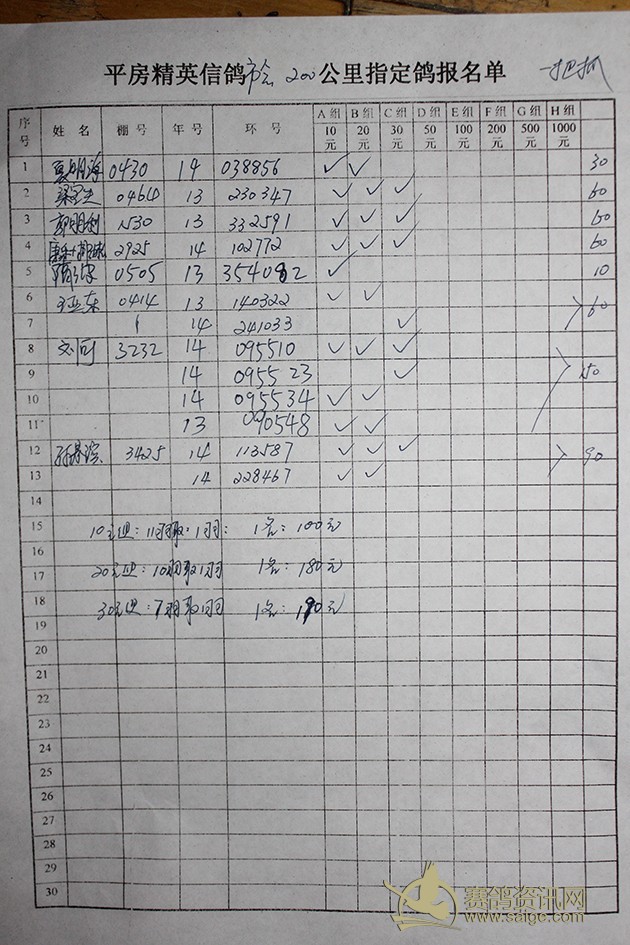 平房精英信鸽 200公里指定鸽报名单 一把抓
序号 姓名 棚号 年号 环号 A组 10元 B组 20元 C组 30元 D组 50元 E组 100元 F组 200元 G组 500元 H组 1000元
1 0430 14 038856 ✓ ✓ 30
2 0464 13 230347 ✓ ✓ ✓ 60
3 1530 13 332591 ✓ ✓ ✓ 60
4 2925 14 102772 ✓ ✓ ✓ 60
5 0505 13 354082 ✓ 10
6 王亚东 0414 13 140322 ✓ ✓ 60
7 14 241033 ✓
8 3232 14 095510 ✓ ✓ ✓
9 14 095523 ✓ 150
10 14 095534 ✓ ✓
11 13 090548 ✓ ✓
12 3425 14 113587 ✓ ✓ ✓ 90
13 14 228467 ✓ ✓
14
15 10元组:11羽取1羽: 1名:100元
16
17 20元组:10羽取1羽 1名:180元
18 30元组:7羽取1羽 1名:190元
19
20
21
22
23
24
25
26
27
28
29
30
赛鸽资讯网
www.saige.com